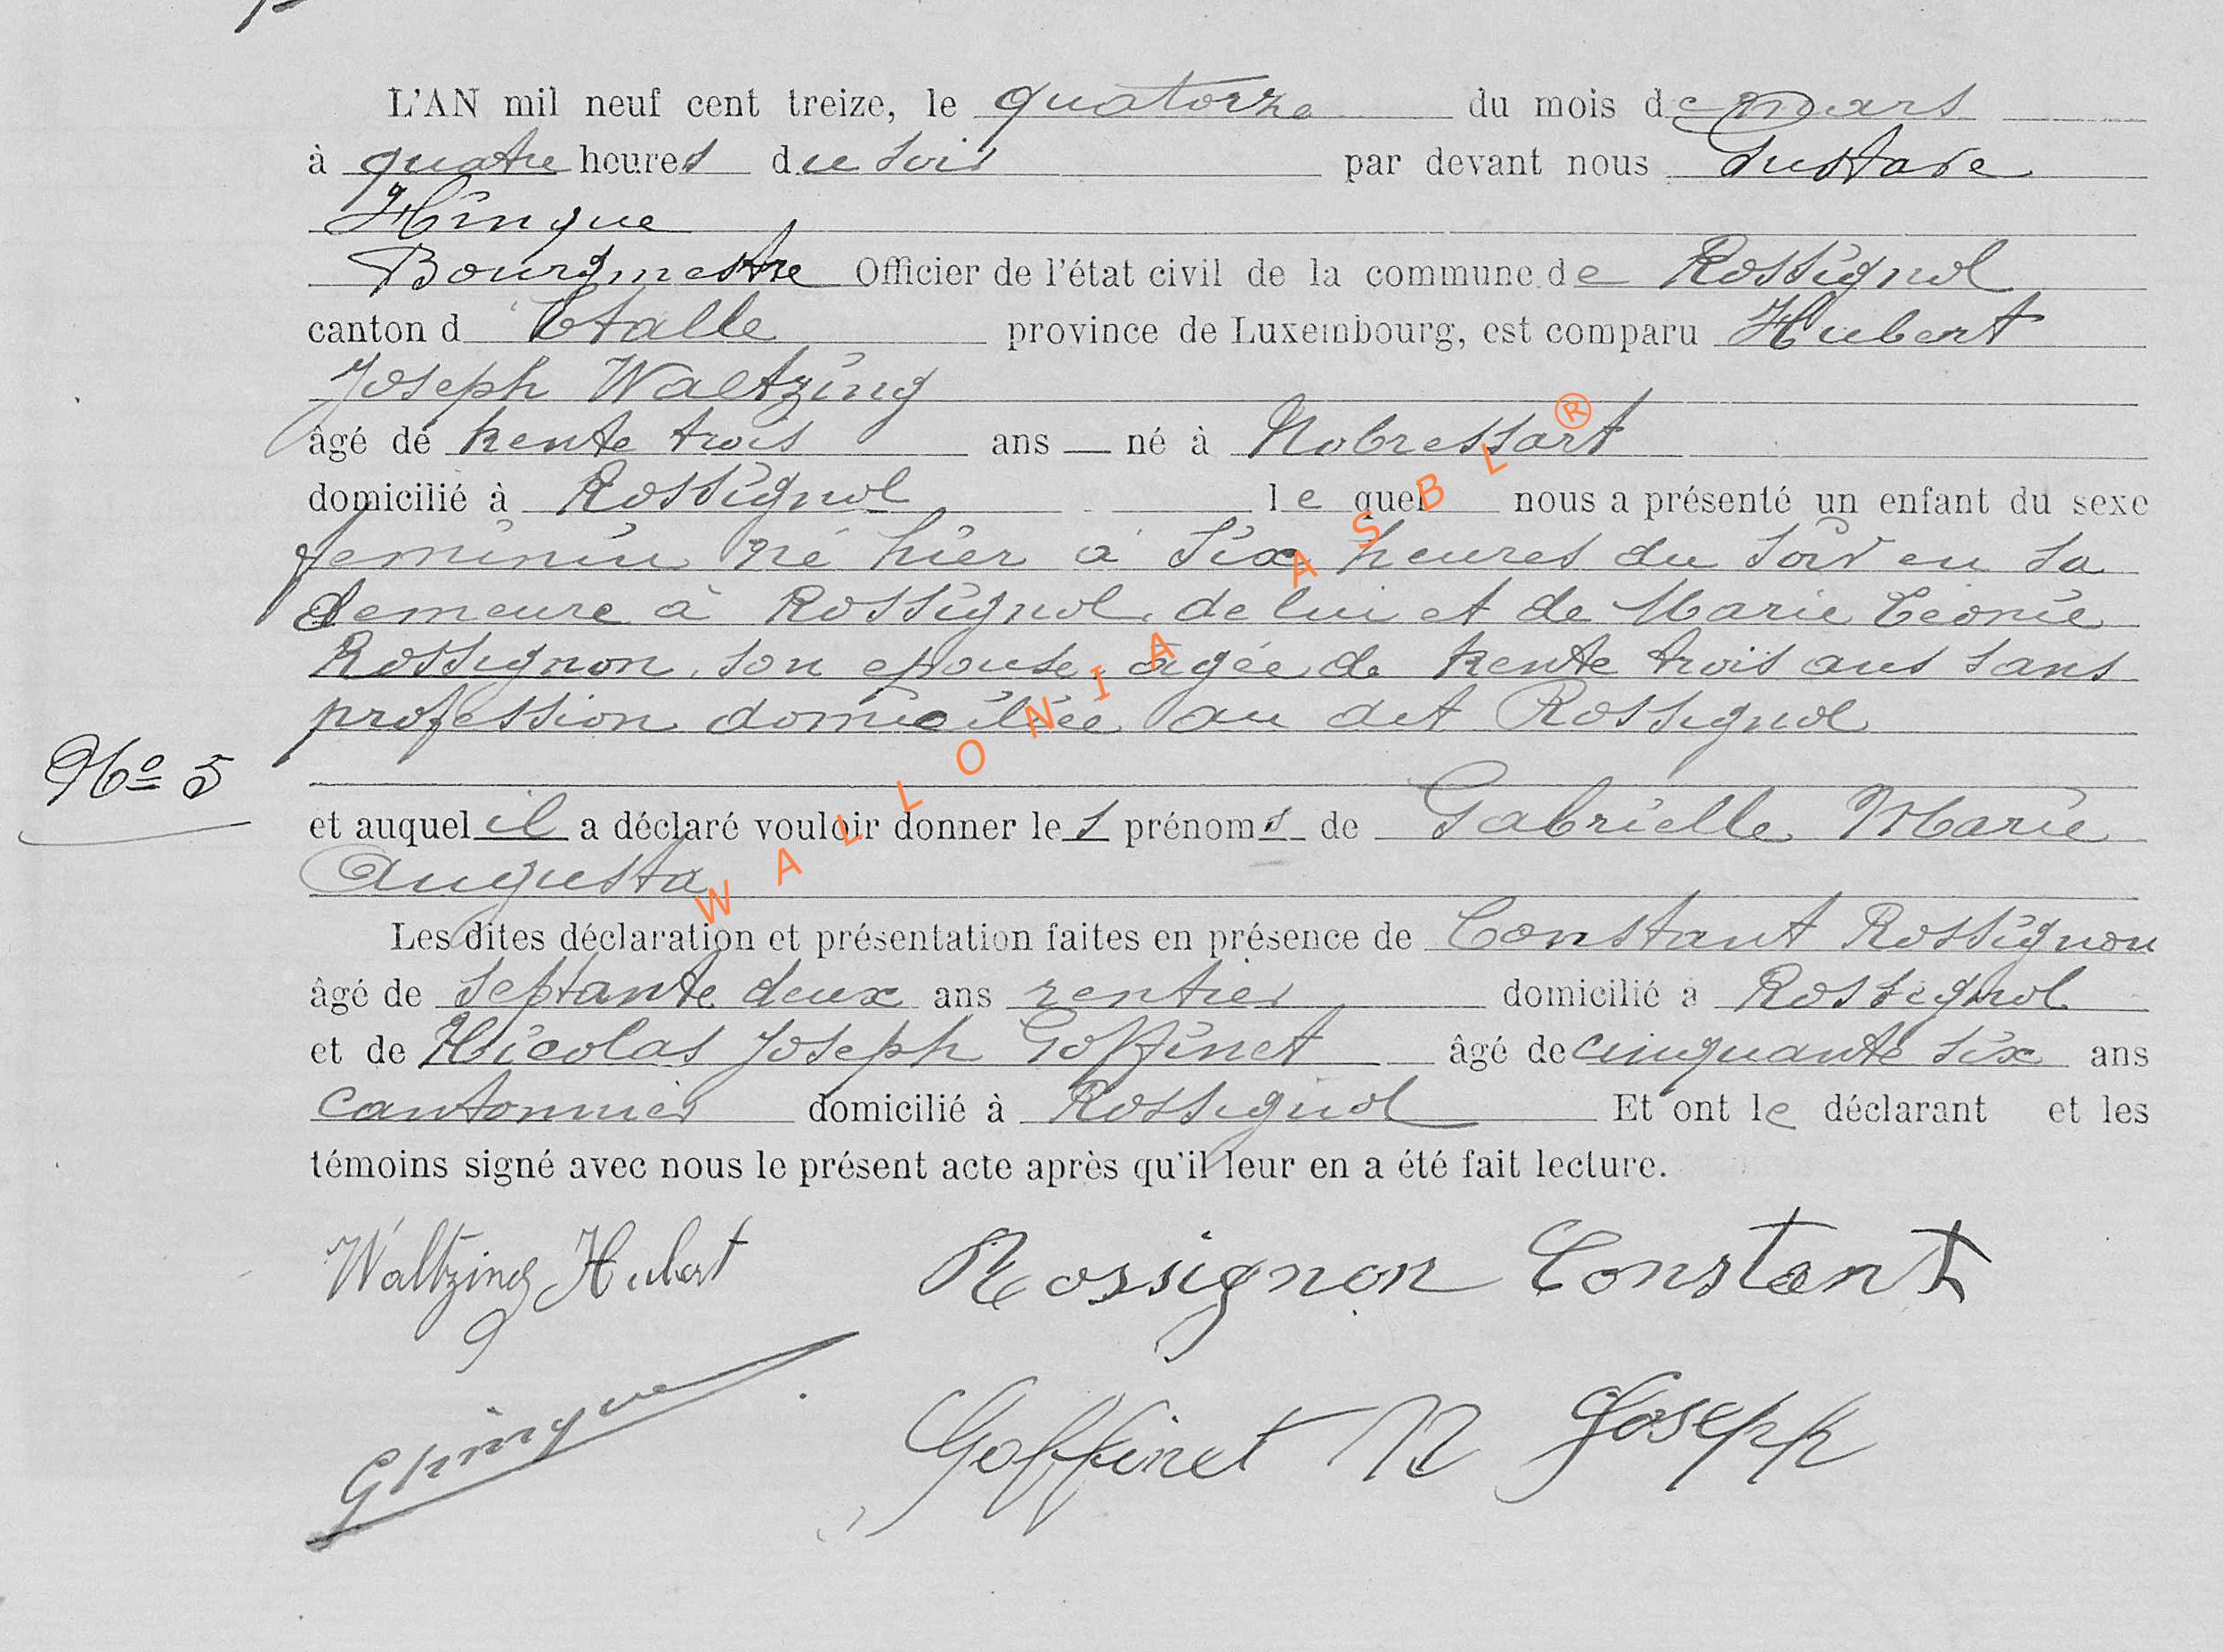 L'AN mil neuf cent treize, le quatorze du mois de mars
à quatre heures du soir par devant nous Gustave
Hinque
Bourgmestre Officier de l'état civil de la commune de Rossignol
canton d'Etalle province de Luxembourg, est comparu Hubert
Joseph Waltzing
âgé de trente trois ans — né à Nobressart
domicilié à Rossignol lequel nous a présenté un enfant du sexe
feminin né hier à six heures du soir en sa
demeure à Rossignol, de lui et de Marie Léonie
Rossignon, son epouse, agée de trente trois ans sans
profession domiciliée au dit Rossignol
No 5
et auquel il a déclaré vouloir donner les prénoms de Gabrielle Marie
Augusta
Les dites déclaration et présentation faites en présence de Constant Rossignon
âgé de septante deux ans rentier domicilié à Rossignol
et de Nicolas Joseph Goffinet âgé de cinquante six ans
cantonnier domicilié à Rossignol Et ont le déclarant et les
témoins signé avec nous le présent acte après qu'il leur en a été fait lecture.
Waltzing Hubert Rossignon Constant
GHinque Goffinet N Joseph
WALLONIA ASBL ®